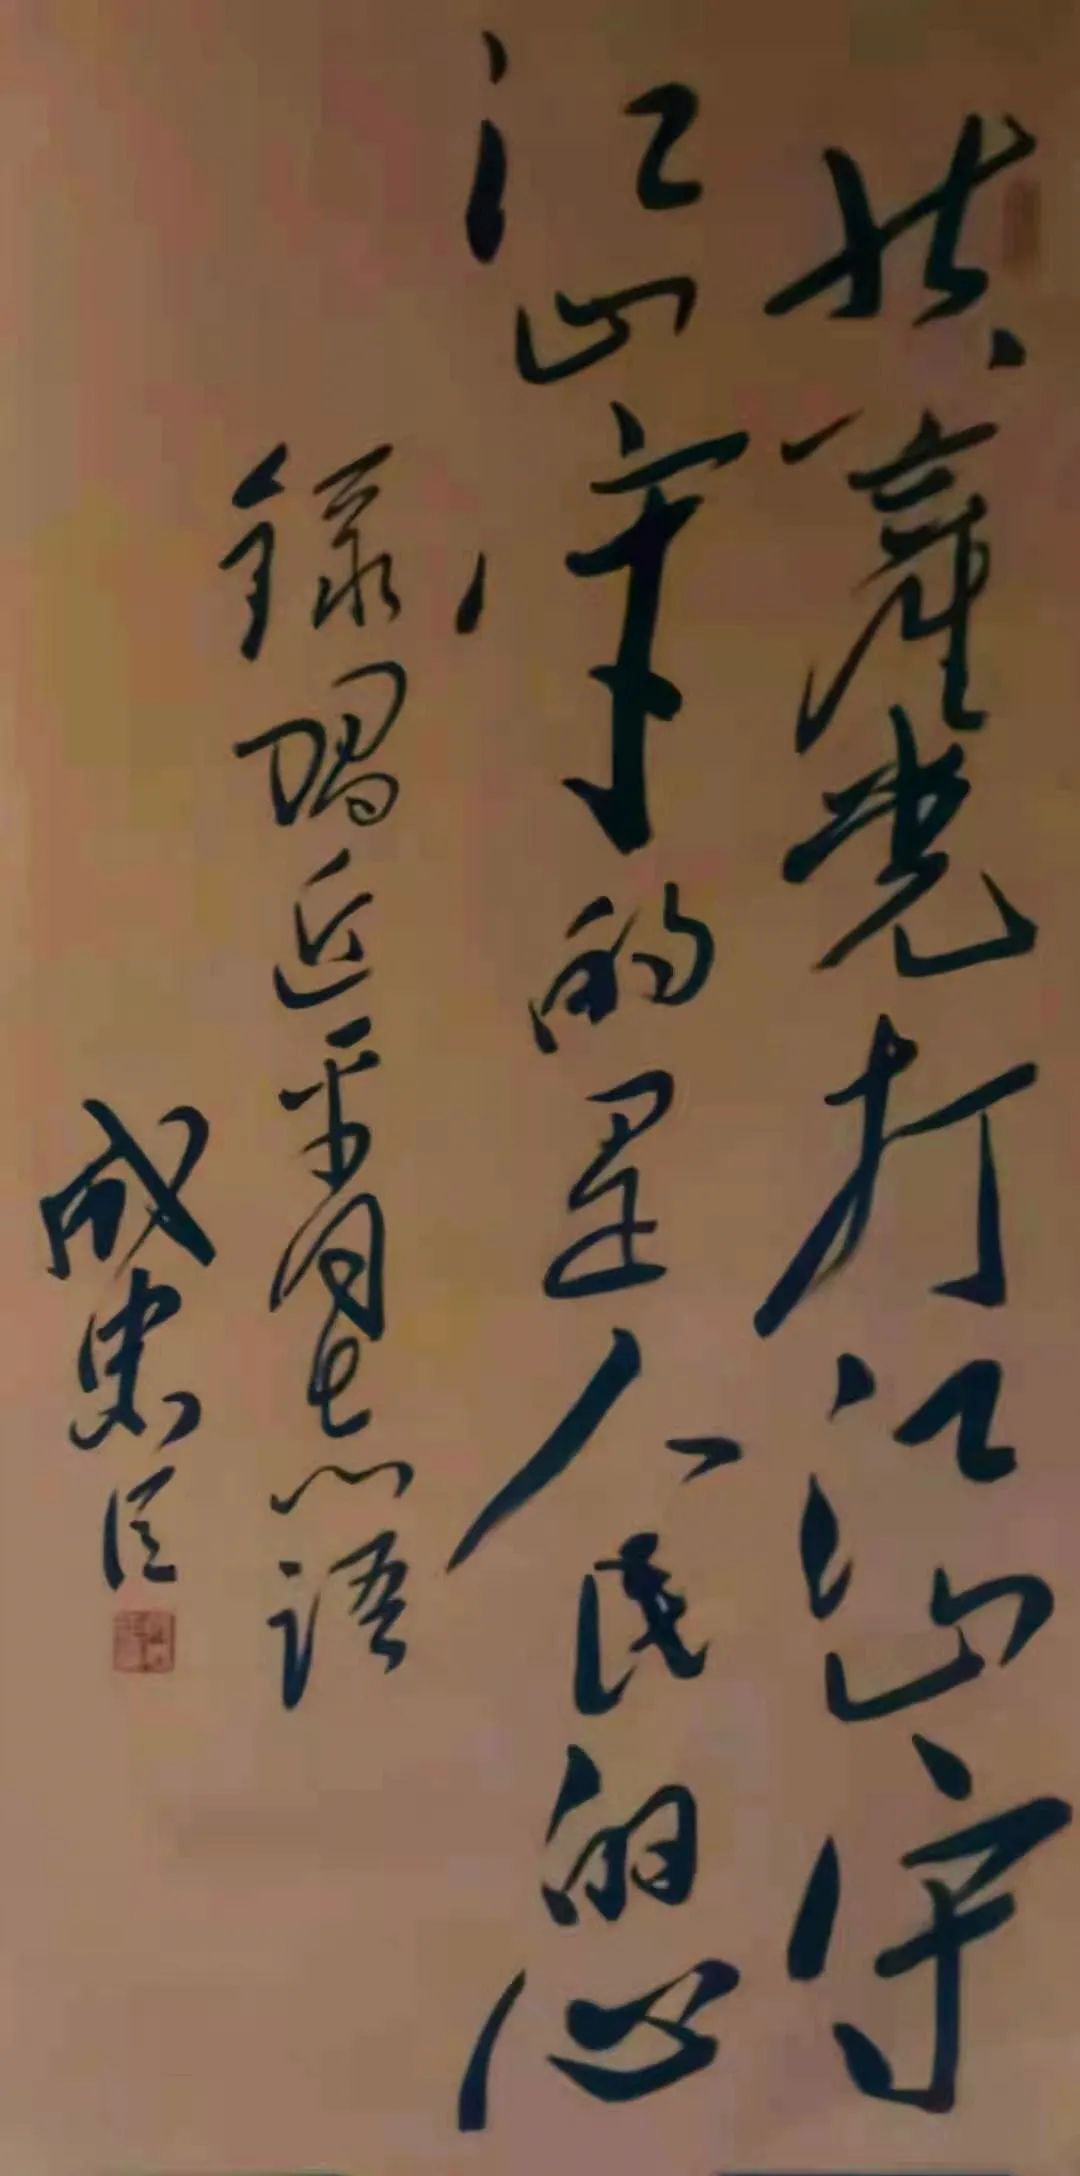 共产党打江山守
江山守的是人民的心
錄习近平同志語
成忠臣